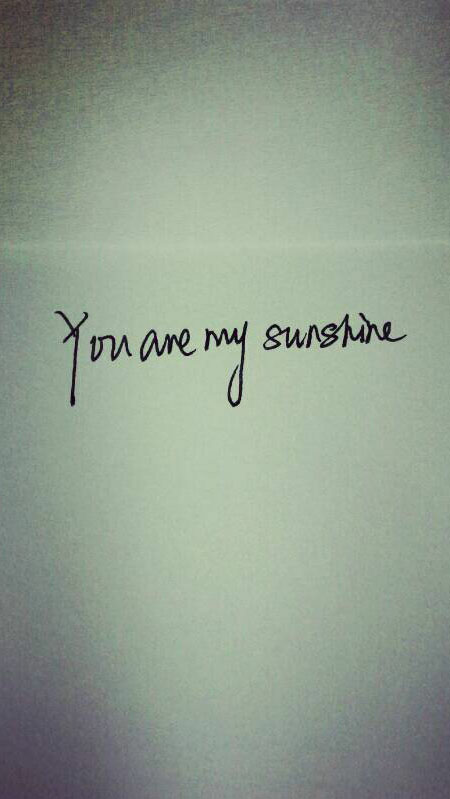 You are my sunshine